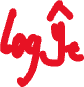 log ŷc